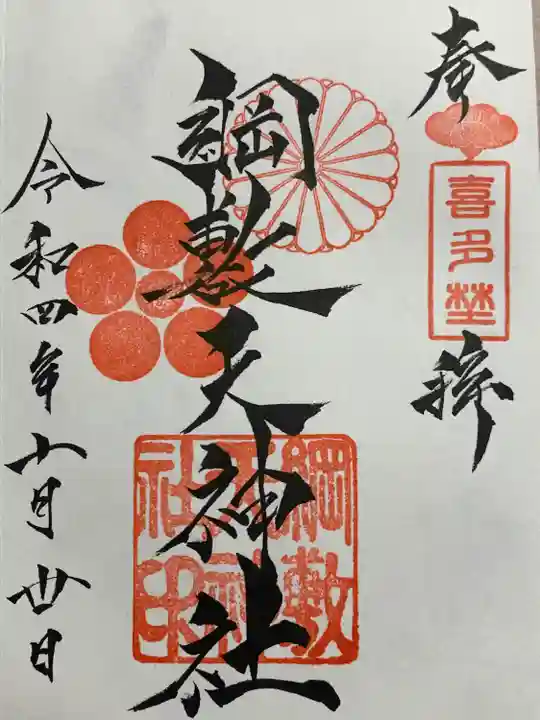 奉拝
喜多埜
綱敷天神社
綱敷天神社印
令和四年十月廿日